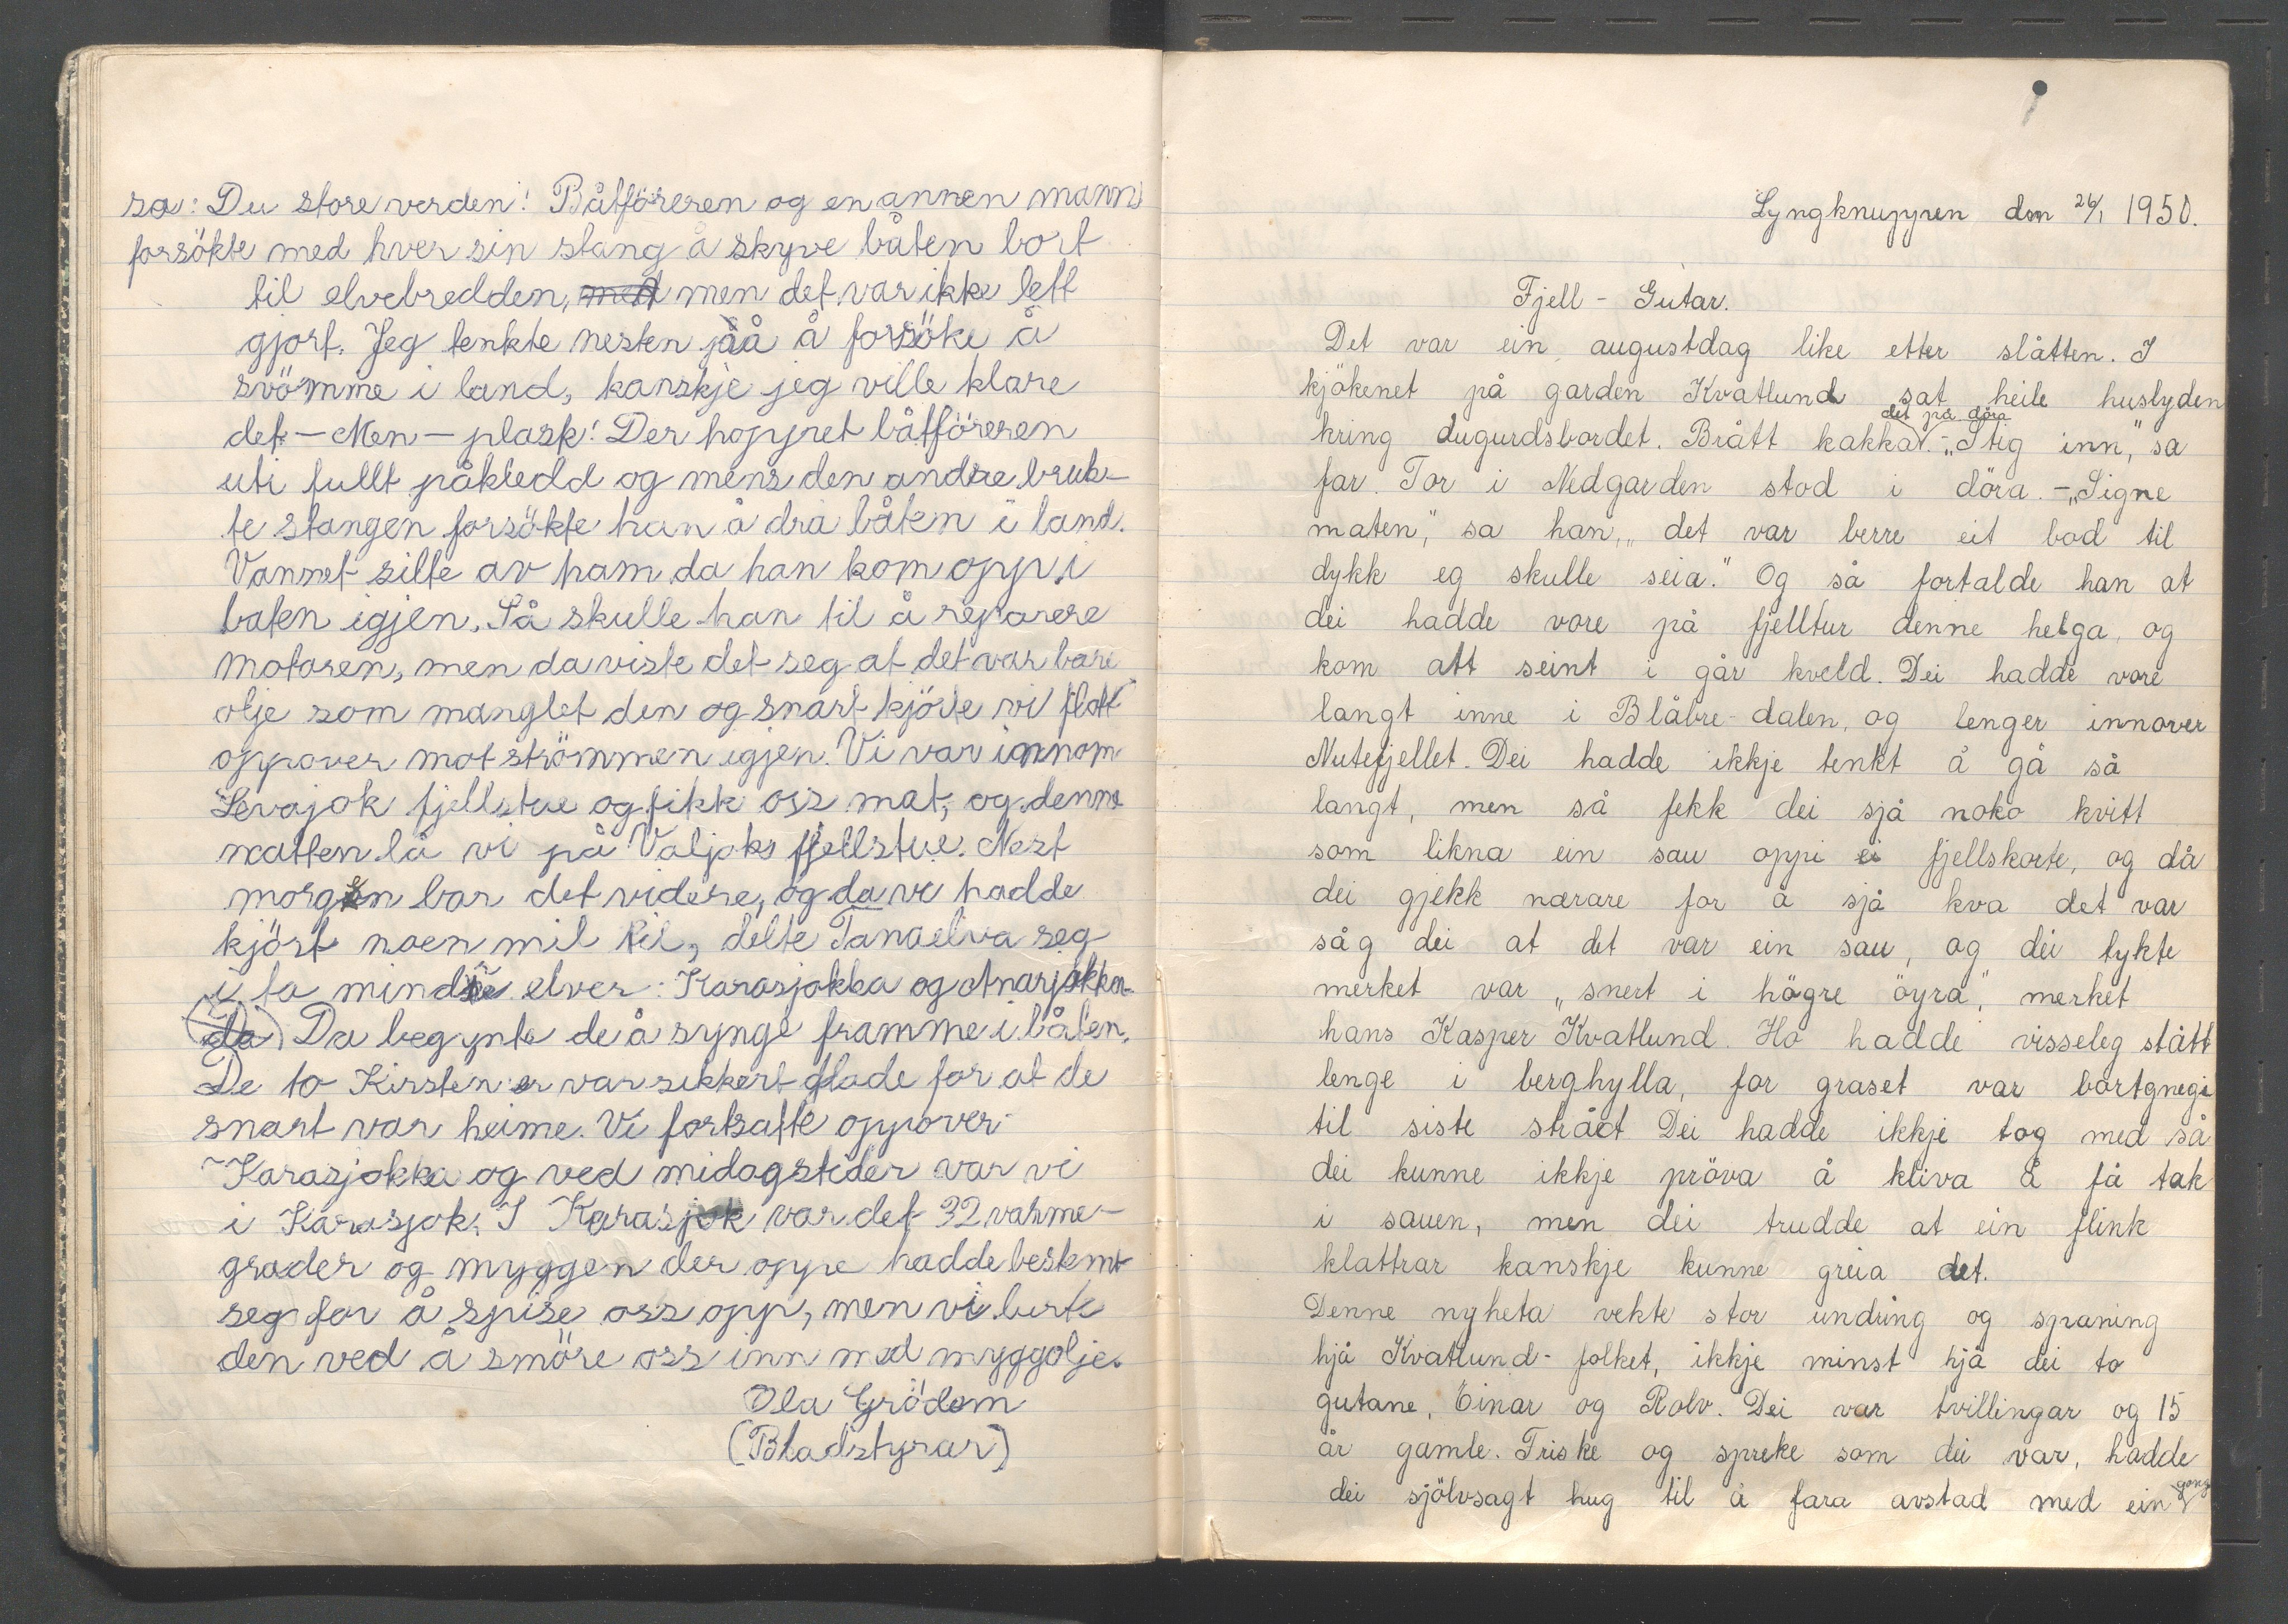 sa: Du store verden! Båtföreren og en annen mann
forsökte med hver sin stang å skyve båten bort
til elvebredden, med men det var ikke lett
gjort. Jeg tenkte nesten på å forsöke å
svömme i land, kanskje jeg ville klare
det. - Men - plask! Der hoppet båtföreren
uti fullt påkledd og mens den andre bruk-
te stangen forsökte han å dra båten i land.
Vannet silte av ham da han kom opp i
båten igjen. Så skulle han til å reparere
motoren, men da viste det seg at det var bare
olje som manglet den og snart kjörte vi flott
oppover mot strömmen igjen. Vi var innom
Levajok fjellstue og fikk oss mat, og denne
natten lå vi på Valjoks fjellstue. Nest
morgen bar det videre, og da vi hadde
kjört noen mil til, delte Tanaelva seg
i to mindre elver: Karasjokka og Anarjokka.
da Da begynte de å synge framme i båten.
De to Kirsten'er var sikkert glade for at de
snart var heime. Vi fortsatte oppover
Karasjokka og ved midagstider var vi
i Karasjok. I Karasjok var det 32 varme-
grader og myggen der oppe hadde bestemt
seg for å spise oss opp, men vi lurte
den ved å smöre oss inn med myggolje.
Ola Grödem
(Bladstyrar)
Lyngknuppen den 26/1 1950.
Fjell - Gutar.
Det var ein augustdag like etter slåtten. I
kjökenet på garden Kvatlund sat heile huslyden
det på döra
kring dugurdsbordet. Brått kakka. - „Stig inn," sa
far. Tor i Nedgarden stod i döra. - „Signe
maten," sa han, „det var berre eit bod til
dykk eg skulle seia." Og så fortalde han at
dei hadde vore på fjelltur denne helga, og
kom att seint i går kveld. Dei hadde vore
langt inne i Blåbre-dalen, og lenger innover
Nutefjellet. Dei hadde ikkje tenkt å gå så
langt, men så fekk dei sjå noko kvitt
som likna ein sau oppi ei fjellskorte, og då
dei gjekk nærare for å sjå kva det var
såg dei at det var ein sau, og dei tykte
merket var „snert i högre öyra", merket
hans Kasper Kvatlund. Ho hadde visseleg stått
lenge i berghylla, for graset var bortgnegi
til siste strået Dei hadde ikkje tog med så
dei kunne ikkje pröva å kliva å få tak
i sauen, men dei trudde at ein flink
klattrar kanskje kunne greia det.
Denne nyheta vekte stor undring og spaning
hjå Kvatlund-folket, ikkje minst hjå dei to
gutane, Einar og Rolv. Dei var tvillingar og 15
år gamle. Friske og spreke som dei var, hadde
dei sjölvsagt hug til å fara avstad med ein gong